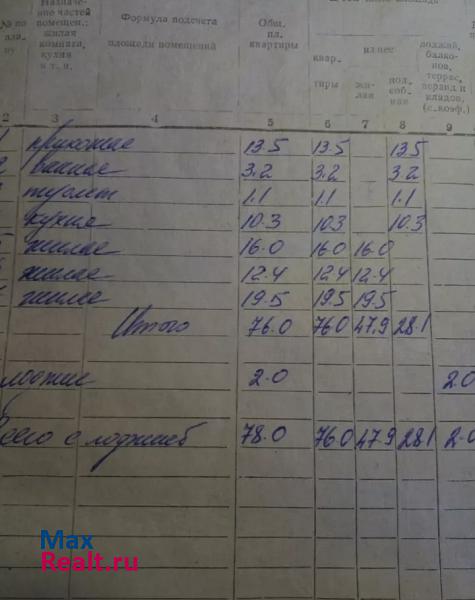 Назначе-
ние частей
помещен.:
жилая
комната,
кухня
и т. п.
Формула подсчета
площади помещений
Общ.
пл.
квартиры
квар-
тиры
из нее
жи-
лая
под-
соб-
ная
лоджий,
балко-
нов,
террас,
веранд и
кладов,
(с коэф.)
2 3 4 5 6 7 8 9
прихожая 13.5 13.5 13.5
ванная 3.2 3.2 3.2
туалет 1.1 1.1 1.1
кухня 10.3 10.3 10.3
жилая 16.0 16.0 16.0
жилая 12.4 12.4 12.4
жилая 19.5 19.5 19.5
Итого 76.0 76.0 47.9 28.1
лоджие 2.0 2.0
всего с лоджией 78.0 76.0 47.9 28.1 2.0
Max
Realt.ru